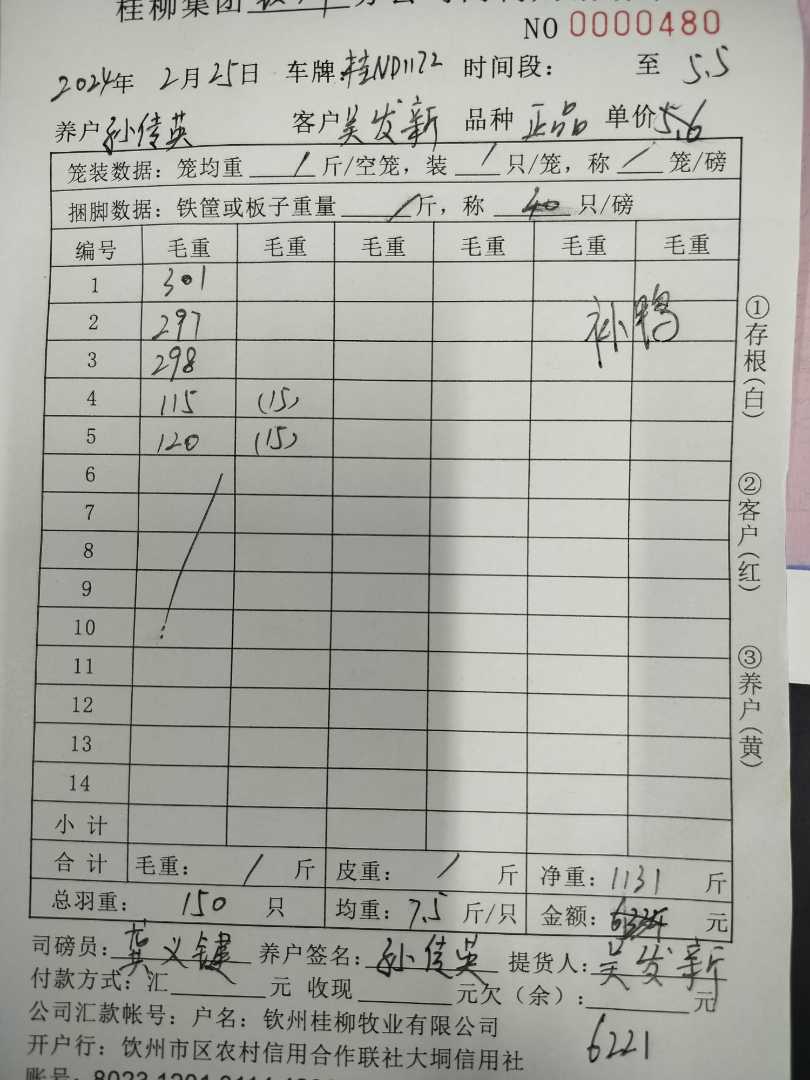 桂柳集团
NO 0000480
2024年 2月25日 车牌:桂ND1172 时间段: 至 5.5
养户 孙倩英 客户 吴发新 品种 正品 单价 5.6
笼装数据: 笼均重 / 斤/空笼, 装 / 只/笼, 称 / 笼/磅
捆脚数据: 铁筐或板子重量 / 斤, 称 40 只/磅
编号 毛重 毛重 毛重 毛重 毛重 毛重
1 301
2 297 补鸭
3 298
4 115 (15)
5 120 (15)
6
7
8
9
10
11
12
13
14
小计
合计 毛重: / 斤 皮重: / 斤 净重: 1131 斤
总羽重: 150 只 均重: 7.5 斤/只 金额: 元
司磅员: 义键 养户签名: 孙倩英 提货人: 吴发新
付款方式: 汇 元 收现 元欠(余): 元
6221
公司汇款帐号: 户名: 钦州桂柳牧业有限公司
开户行: 钦州市区农村信用合作联社大垌信用社
账号: 8023
①存根(白)
②客户(红)
③养户(黄)